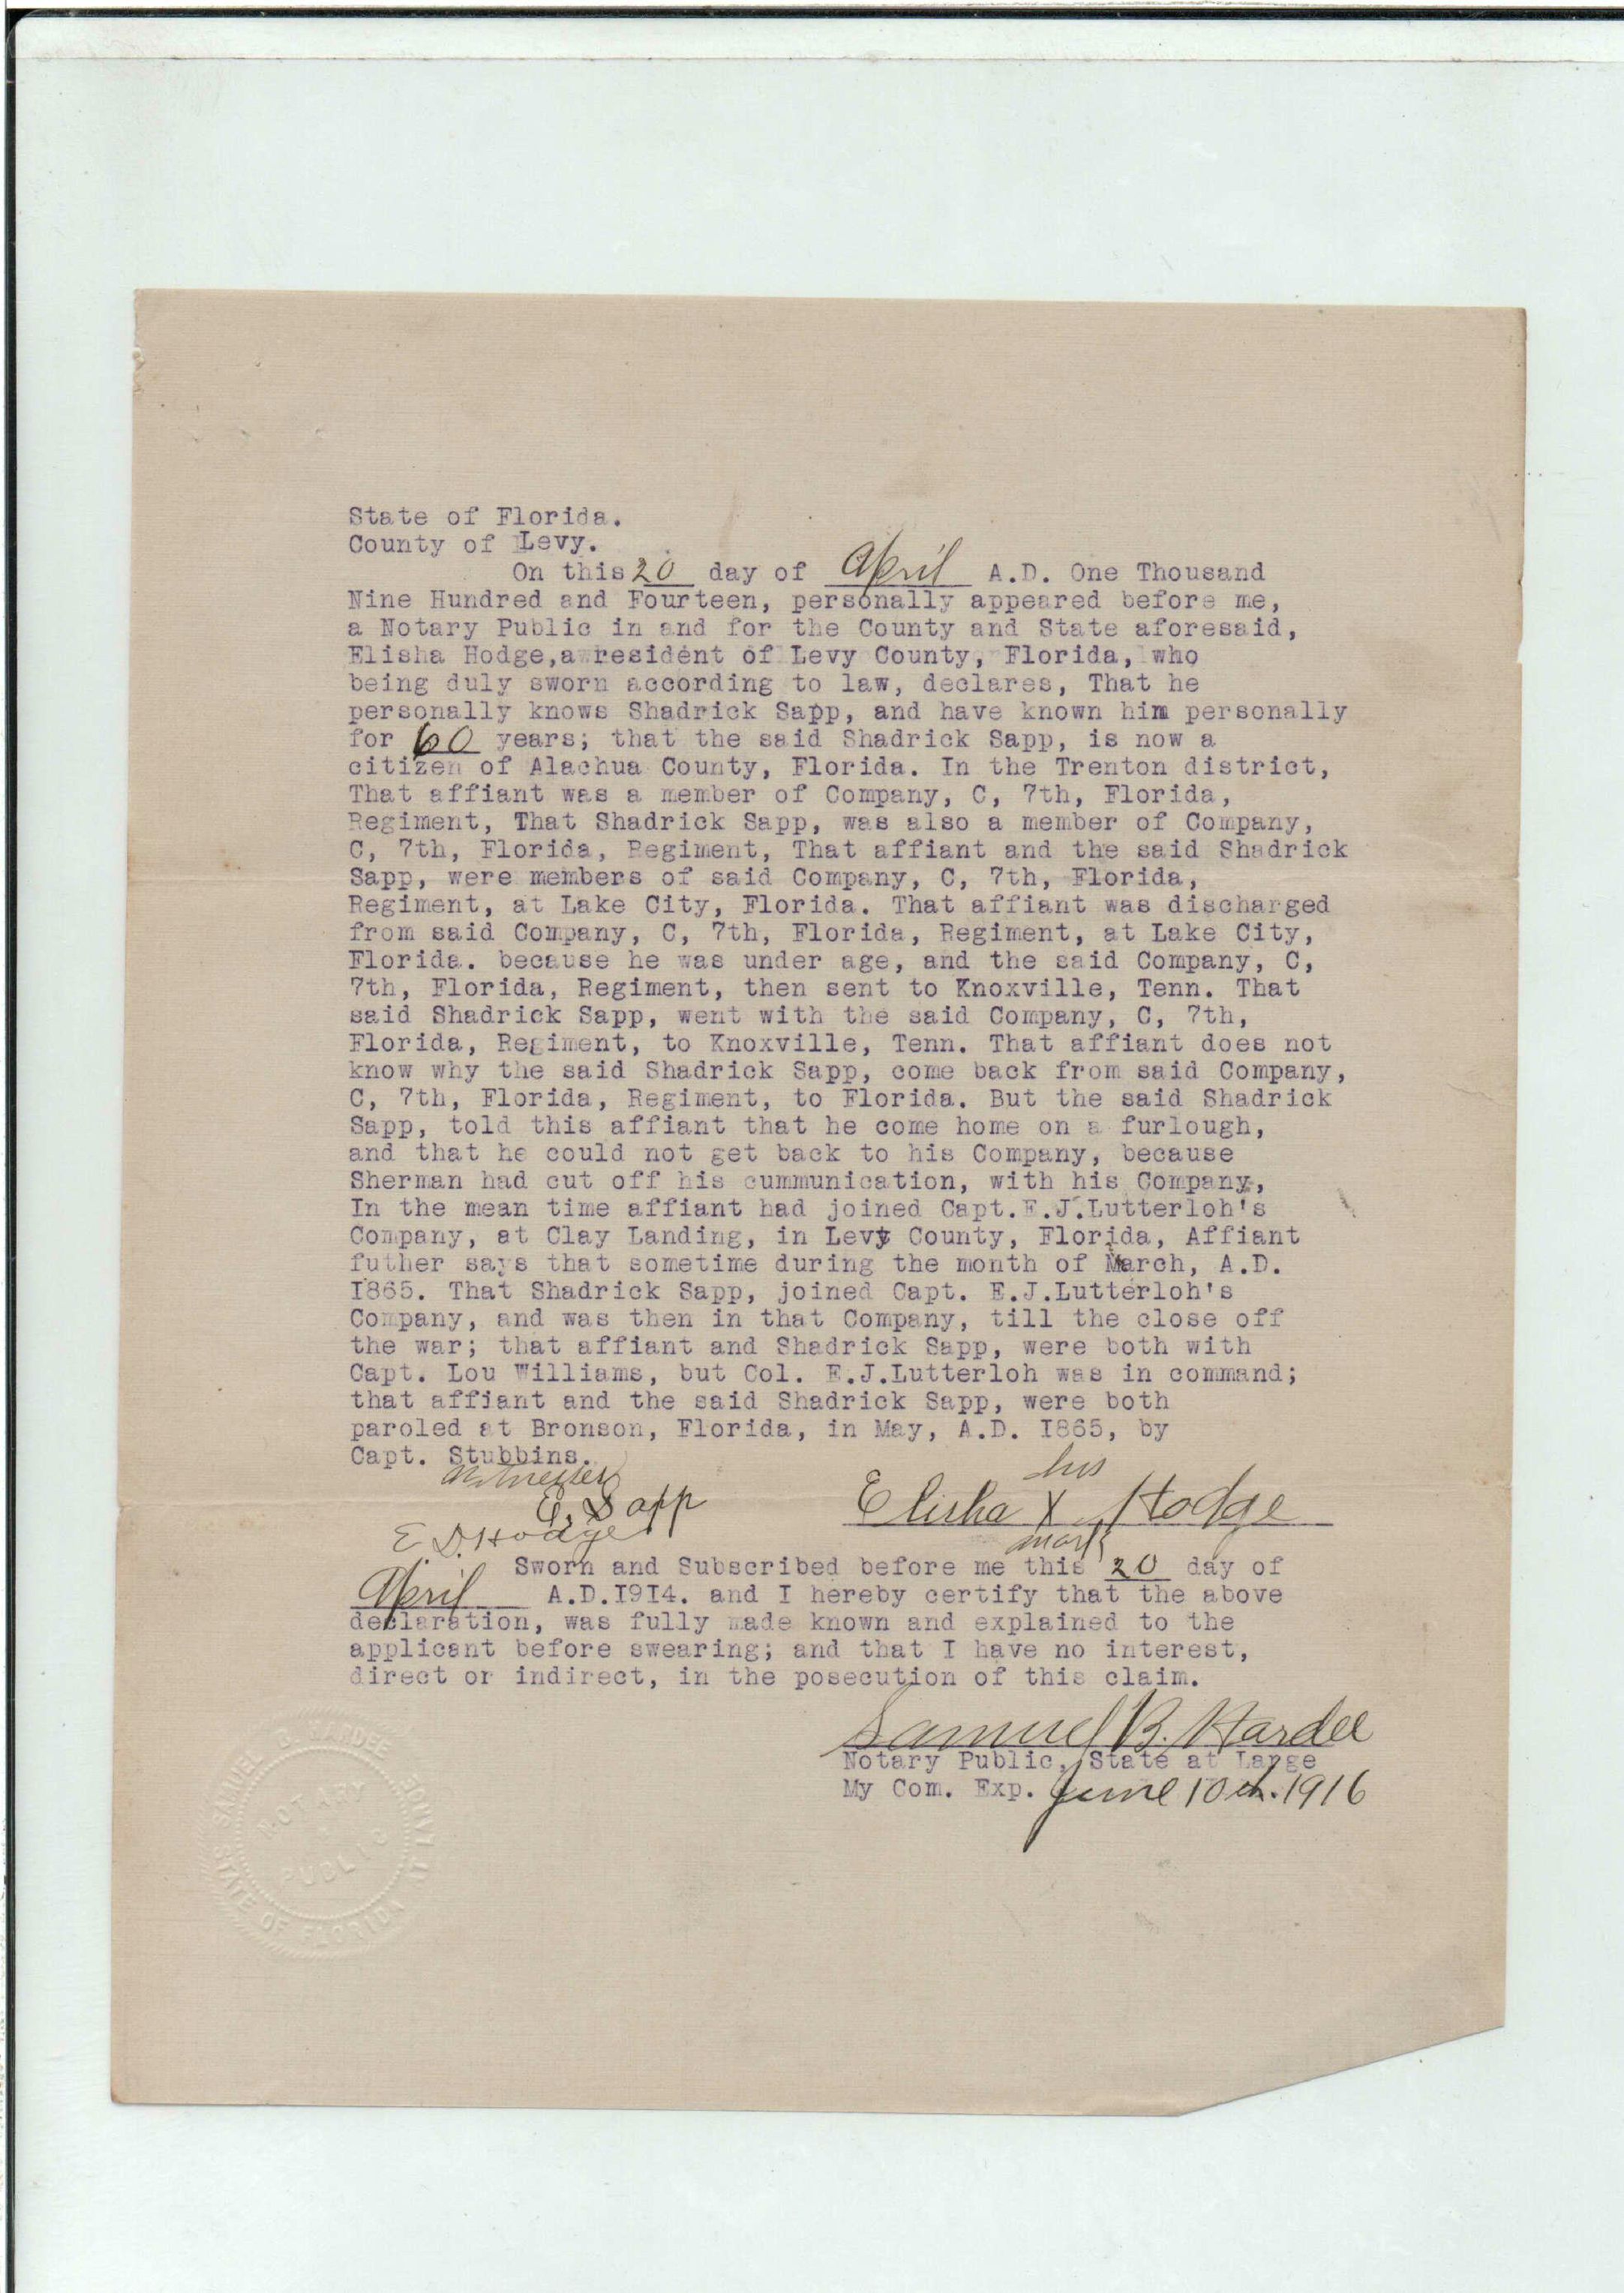 State of Florida.
County of Levy.
On this 20 day of April A.D. One Thousand
Nine Hundred and Fourteen, personally appeared before me,
a Notary Public in and for the County and State aforesaid,
Elisha Hodge,a resident of Levy County, Florida, who
being duly sworn according to law, declares, That he
personally knows Shadrick Sapp, and have known him personally
for 60 years; that the said Shadrick Sapp, is now a
citizen of Alachua County, Florida. In the Trenton district,
That affiant was a member of Company, C, 7th, Florida,
Regiment, That Shadrick Sapp, was also a member of Company,
C, 7th, Florida, Regiment, That affiant and the said Shadrick
Sapp, were members of said Company, C, 7th, Florida,
Regiment, at Lake City, Florida. That affiant was discharged
from said Company, C, 7th, Florida, Regiment, at Lake City,
Florida. because he was under age, and the said Company, C,
7th, Florida, Regiment, then sent to Knoxville, Tenn. That
said Shadrick Sapp, went with the said Company, C, 7th,
Florida, Regiment, to Knoxville, Tenn. That affiant does not
know why the said Shadrick Sapp, come back from said Company,
C, 7th, Florida, Regiment, to Florida. But the said Shadrick
Sapp, told this affiant that he come home on a furlough,
and that he could not get back to his Company, because
Sherman had cut off his cummunication, with his Company,
In the mean time affiant had joined Capt.E.J.Lutterloh's
Company, at Clay Landing, in Levy County, Florida, Affiant
futher says that sometime during the month of March, A.D.
I865. That Shadrick Sapp, joined Capt. E.J.Lutterloh's
Company, and was then in that Company, till the close off
the war; that affiant and Shadrick Sapp, were both with
Capt. Lou Williams, but Col. E.J.Lutterloh was in command;
that affiant and the said Shadrick Sapp, were both
paroled at Bronson, Florida, in May, A.D. I865, by
Capt. Stubbins.
Witnesses his
E. Sapp Elisha X Hodge
E D. Hodge mark
Sworn and Subscribed before me this 20 day of
April A.D.I9I4. and I hereby certify that the above
declaration, was fully made known and explained to the
applicant before swearing; and that I have no interest,
direct or indirect, in the posecution of this claim.
Samuel B. Hardee
Notary Public, State at Large
My Com. Exp. June 10th. 1916
SAMUEL B. HARDEE
NOTARY
PUBLIC
STATE OF FLORIDA